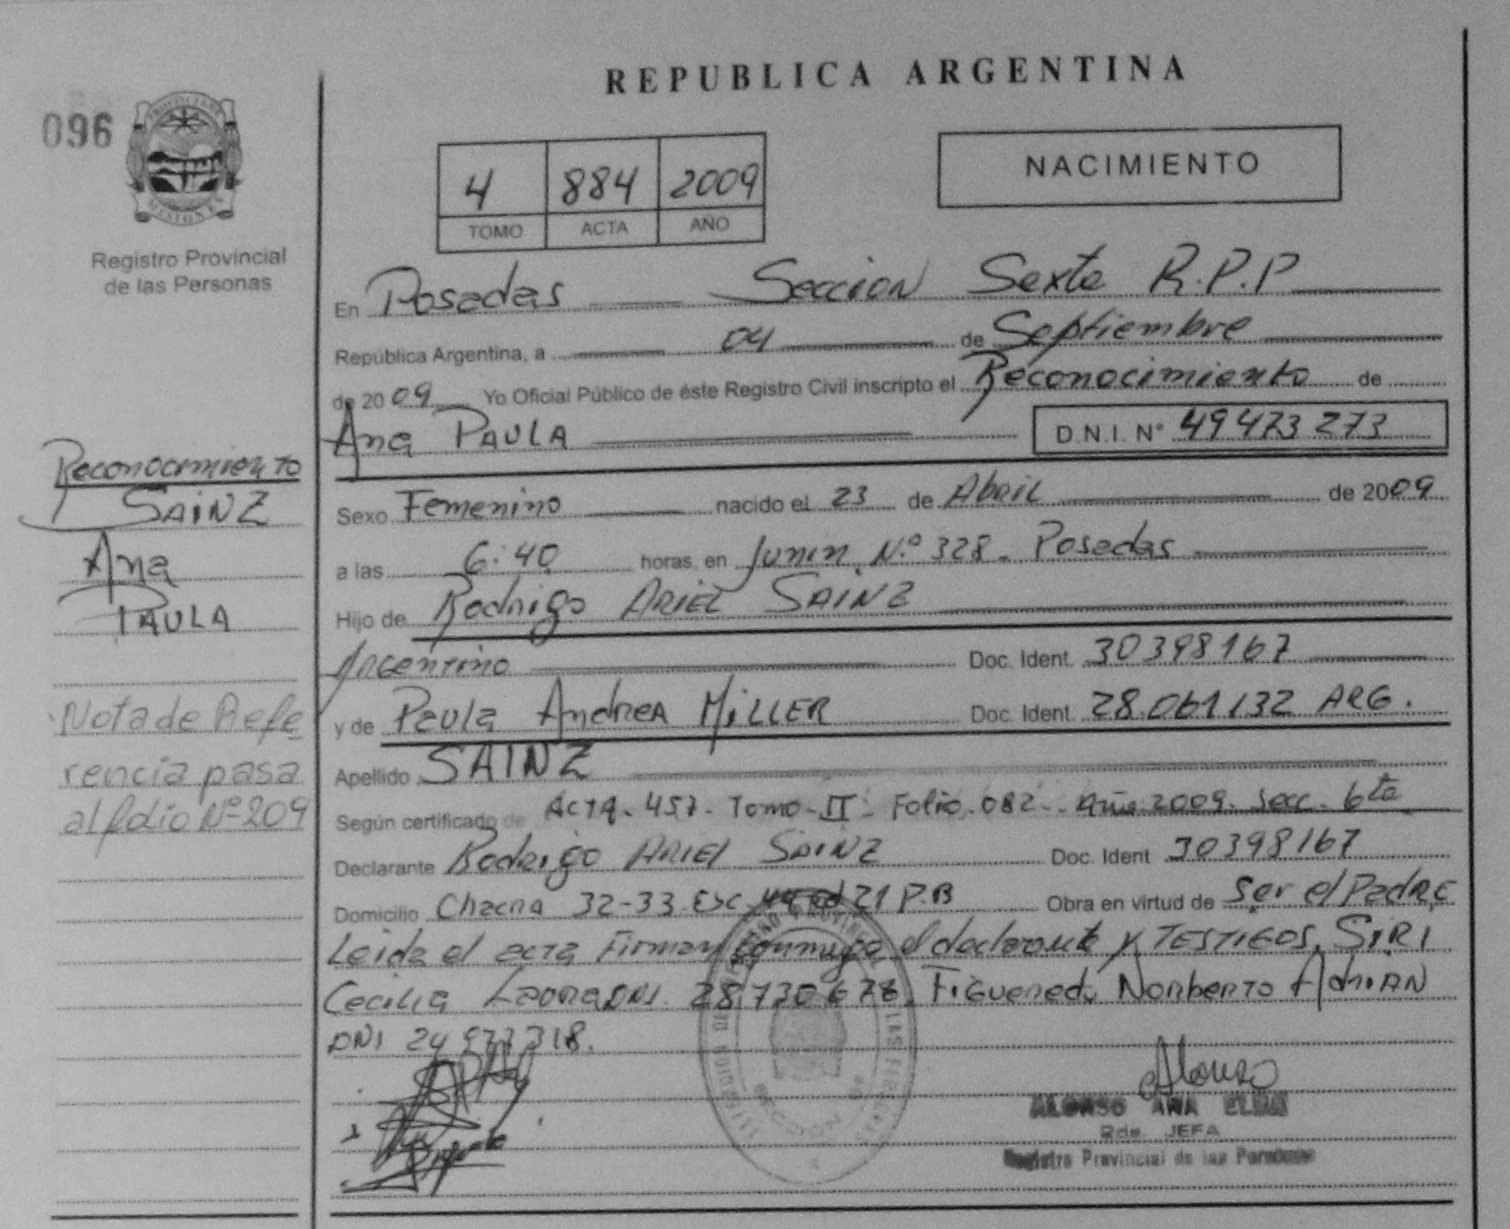 REPUBLICA ARGENTINA
096
PROVINCIA DE MISIONES
Registro Provincial
de las Personas
4 884 2009
TOMO ACTA AÑO
NACIMIENTO
En Posadas Seccion Sexta R.P.P
República Argentina, a 04 de Septiembre
de 2009 Yo Oficial Público de éste Registro Civil inscripto el Reconocimiento de
Ana PAULA D.N.I. Nº 49473273
Sexo Femenino nacido el 23 de Abril de 2009
a las 6:40 horas, en Junin N.º 328. Posadas
Hijo de Rodrigo ARIEL SAINZ
Argentino Doc. Ident. 30398167
y de Paula Andrea MILLER Doc. Ident. 28.061.132 ARG.
Apellido SAINZ
Según certificado de ACTA-457-Tomo-II-Folio.082-Año 2009. Secc. 6ta
Declarante Rodrigo ARIEL SAINZ Doc. Ident 30398167
Domicilio Chacra 32-33 Esc 21 P.B Obra en virtud de Ser el Padre
Leida el acta Firman conmigo el declarante y TESTIGOS. SIRI
Cecilia Laura DNI. 28.730.678. Figueredo Norberto Adrian
DNI 24 977318.
Reconocimiento
SAINZ
Ana
PAULA
Nota de Refe
rencia pasa
al folio Nº 209
Alonso
ALONSO ANA ELBA
Rde. JEFA
Registro Provincial de las Personas